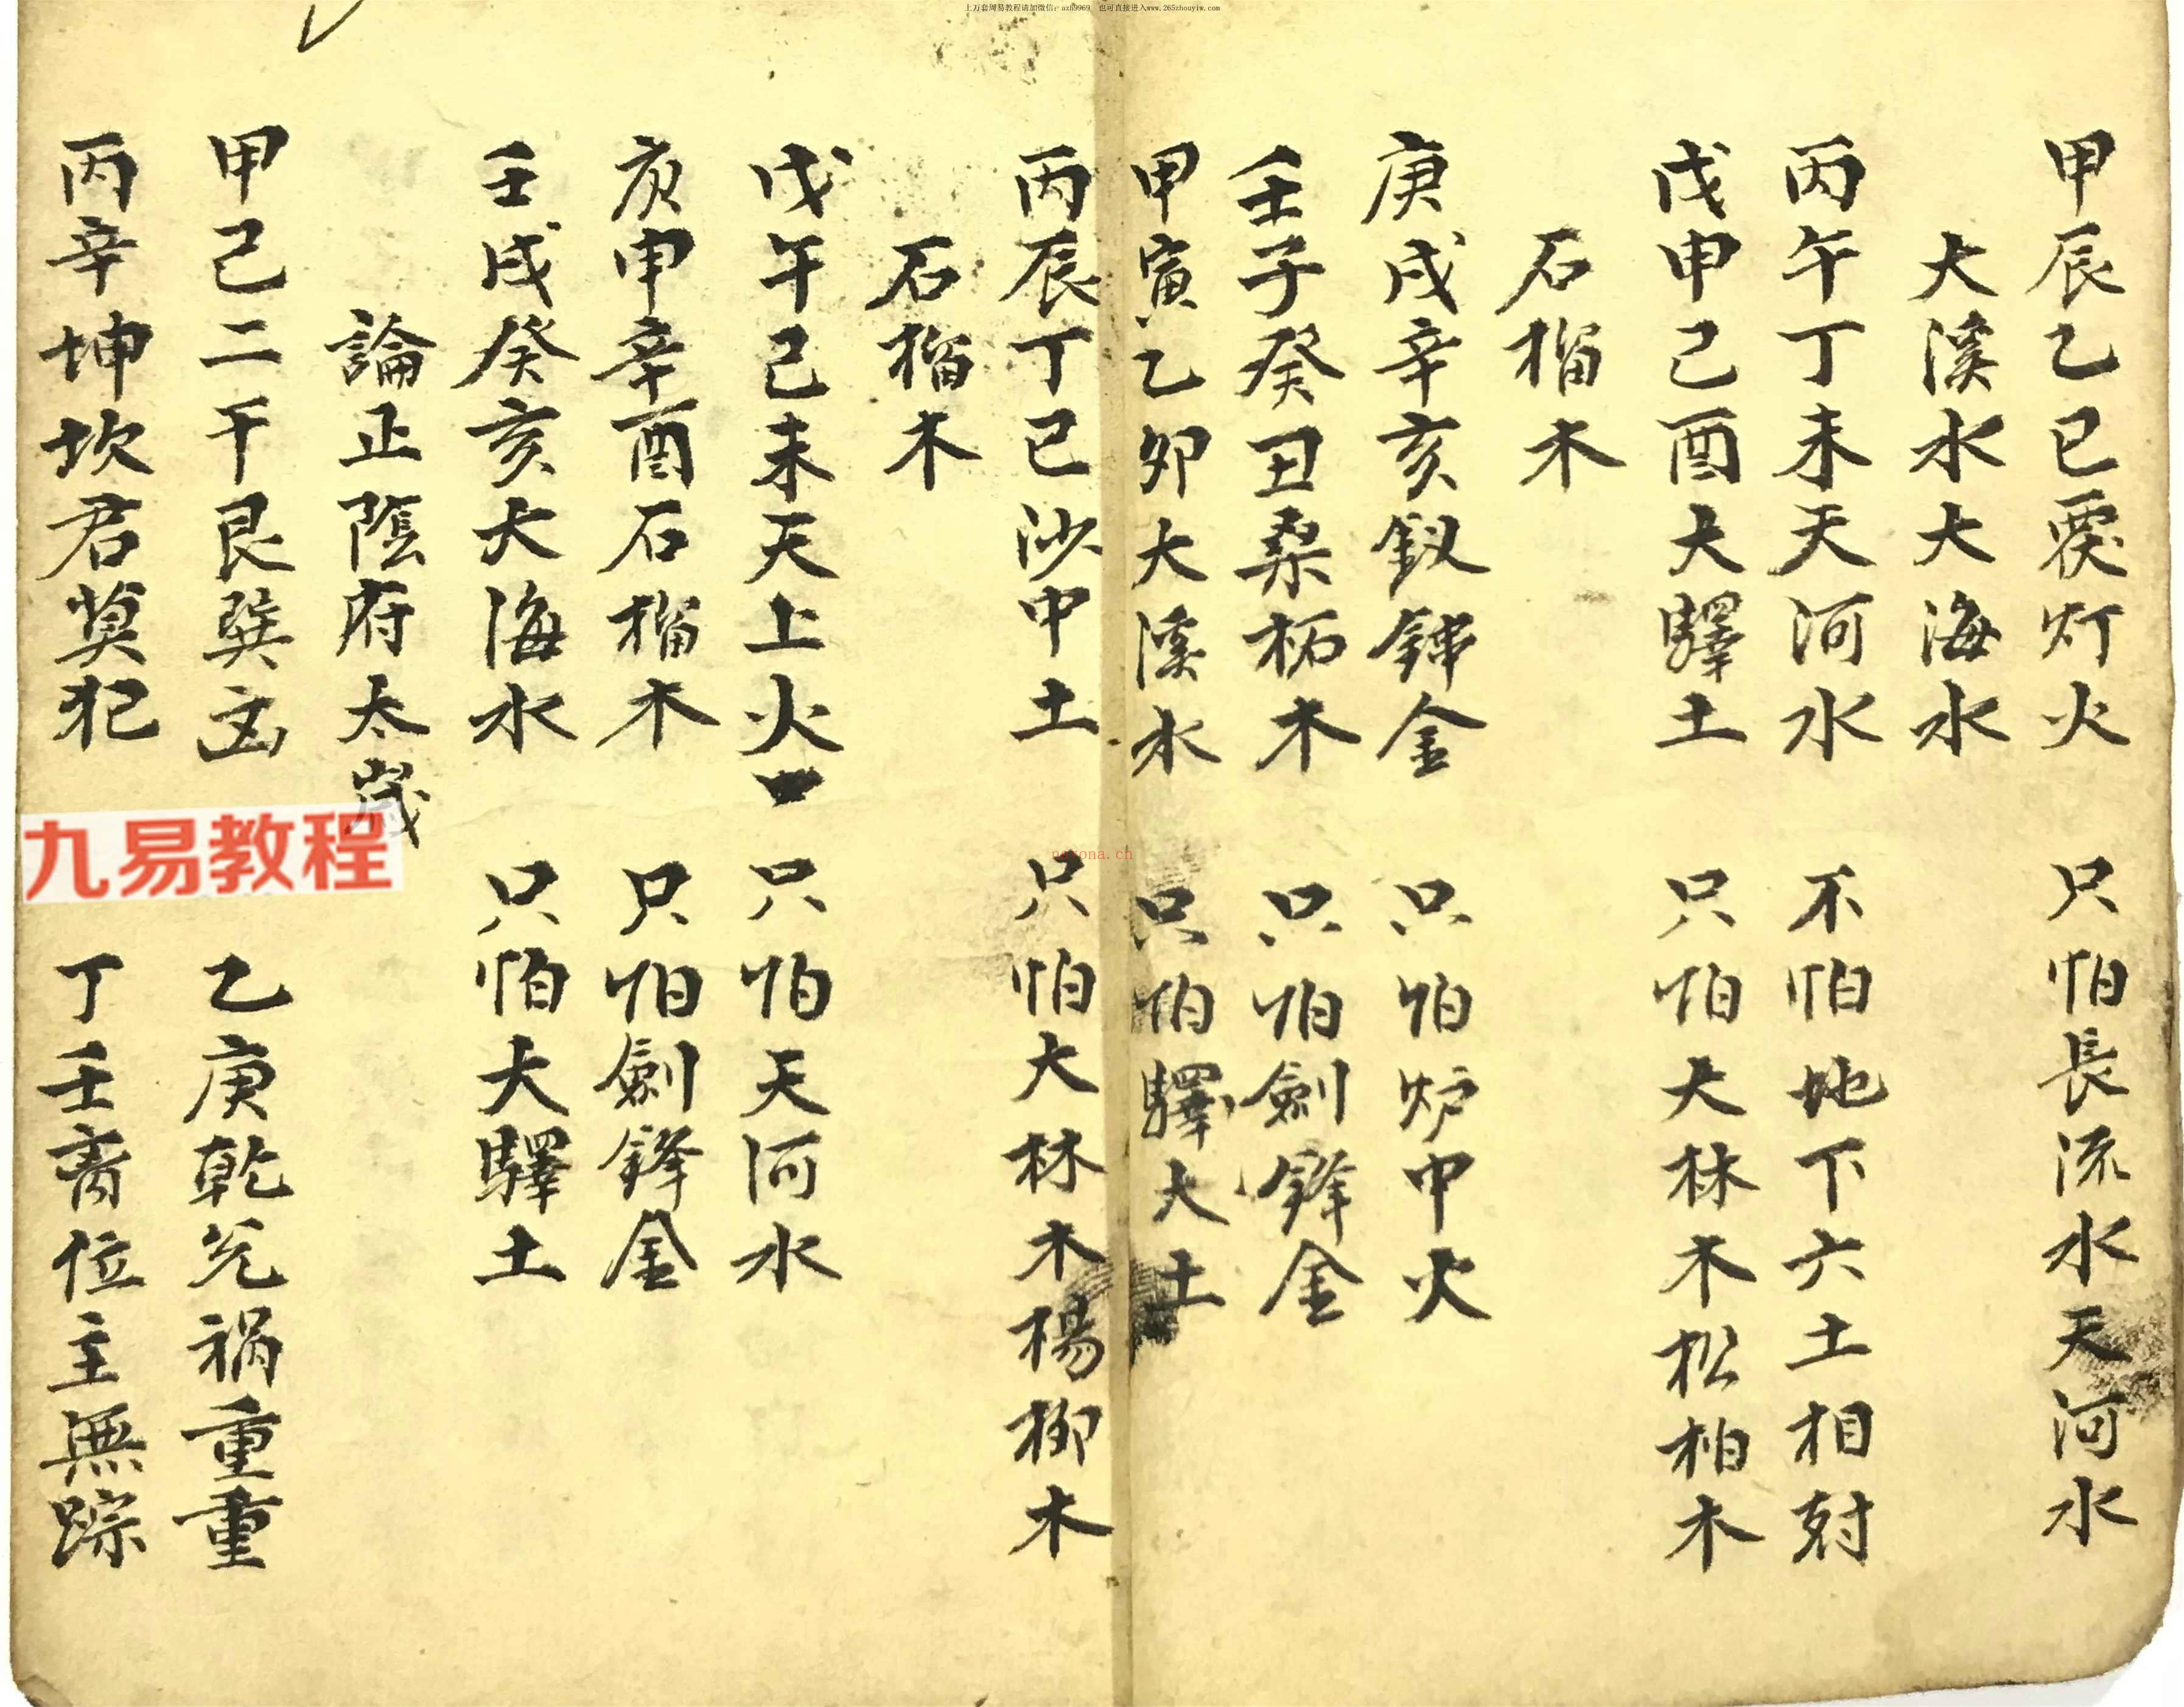 上万套周易教程请加微信：azh9969　也可直接进入www.265zhouyiw.com
甲辰乙巳覆灯火　只怕長流水天河水
大溪水大海水
丙午丁未天河水　不怕地下六土相尅
戊申己酉大驛土　只怕大林木松柏木
石榴木
庚戌辛亥釵鉀金　只怕炉中火
壬子癸丑桑柘木　只怕劍鋒金
甲寅乙卯大溪水　只怕驛大土
丙辰丁巳沙中土　只怕大林木楊柳木
石榴木
戊午己未天上火　只怕天河水
庚申辛酉石榴木　只怕劍鋒金
壬戌癸亥大海水　只怕大驛土
論正陰府太歲
甲己二干艮巽凶　乙庚乾兑祸重重
丙辛坤坎君莫犯　丁壬离位主無踪
九易教程
nayona.ch